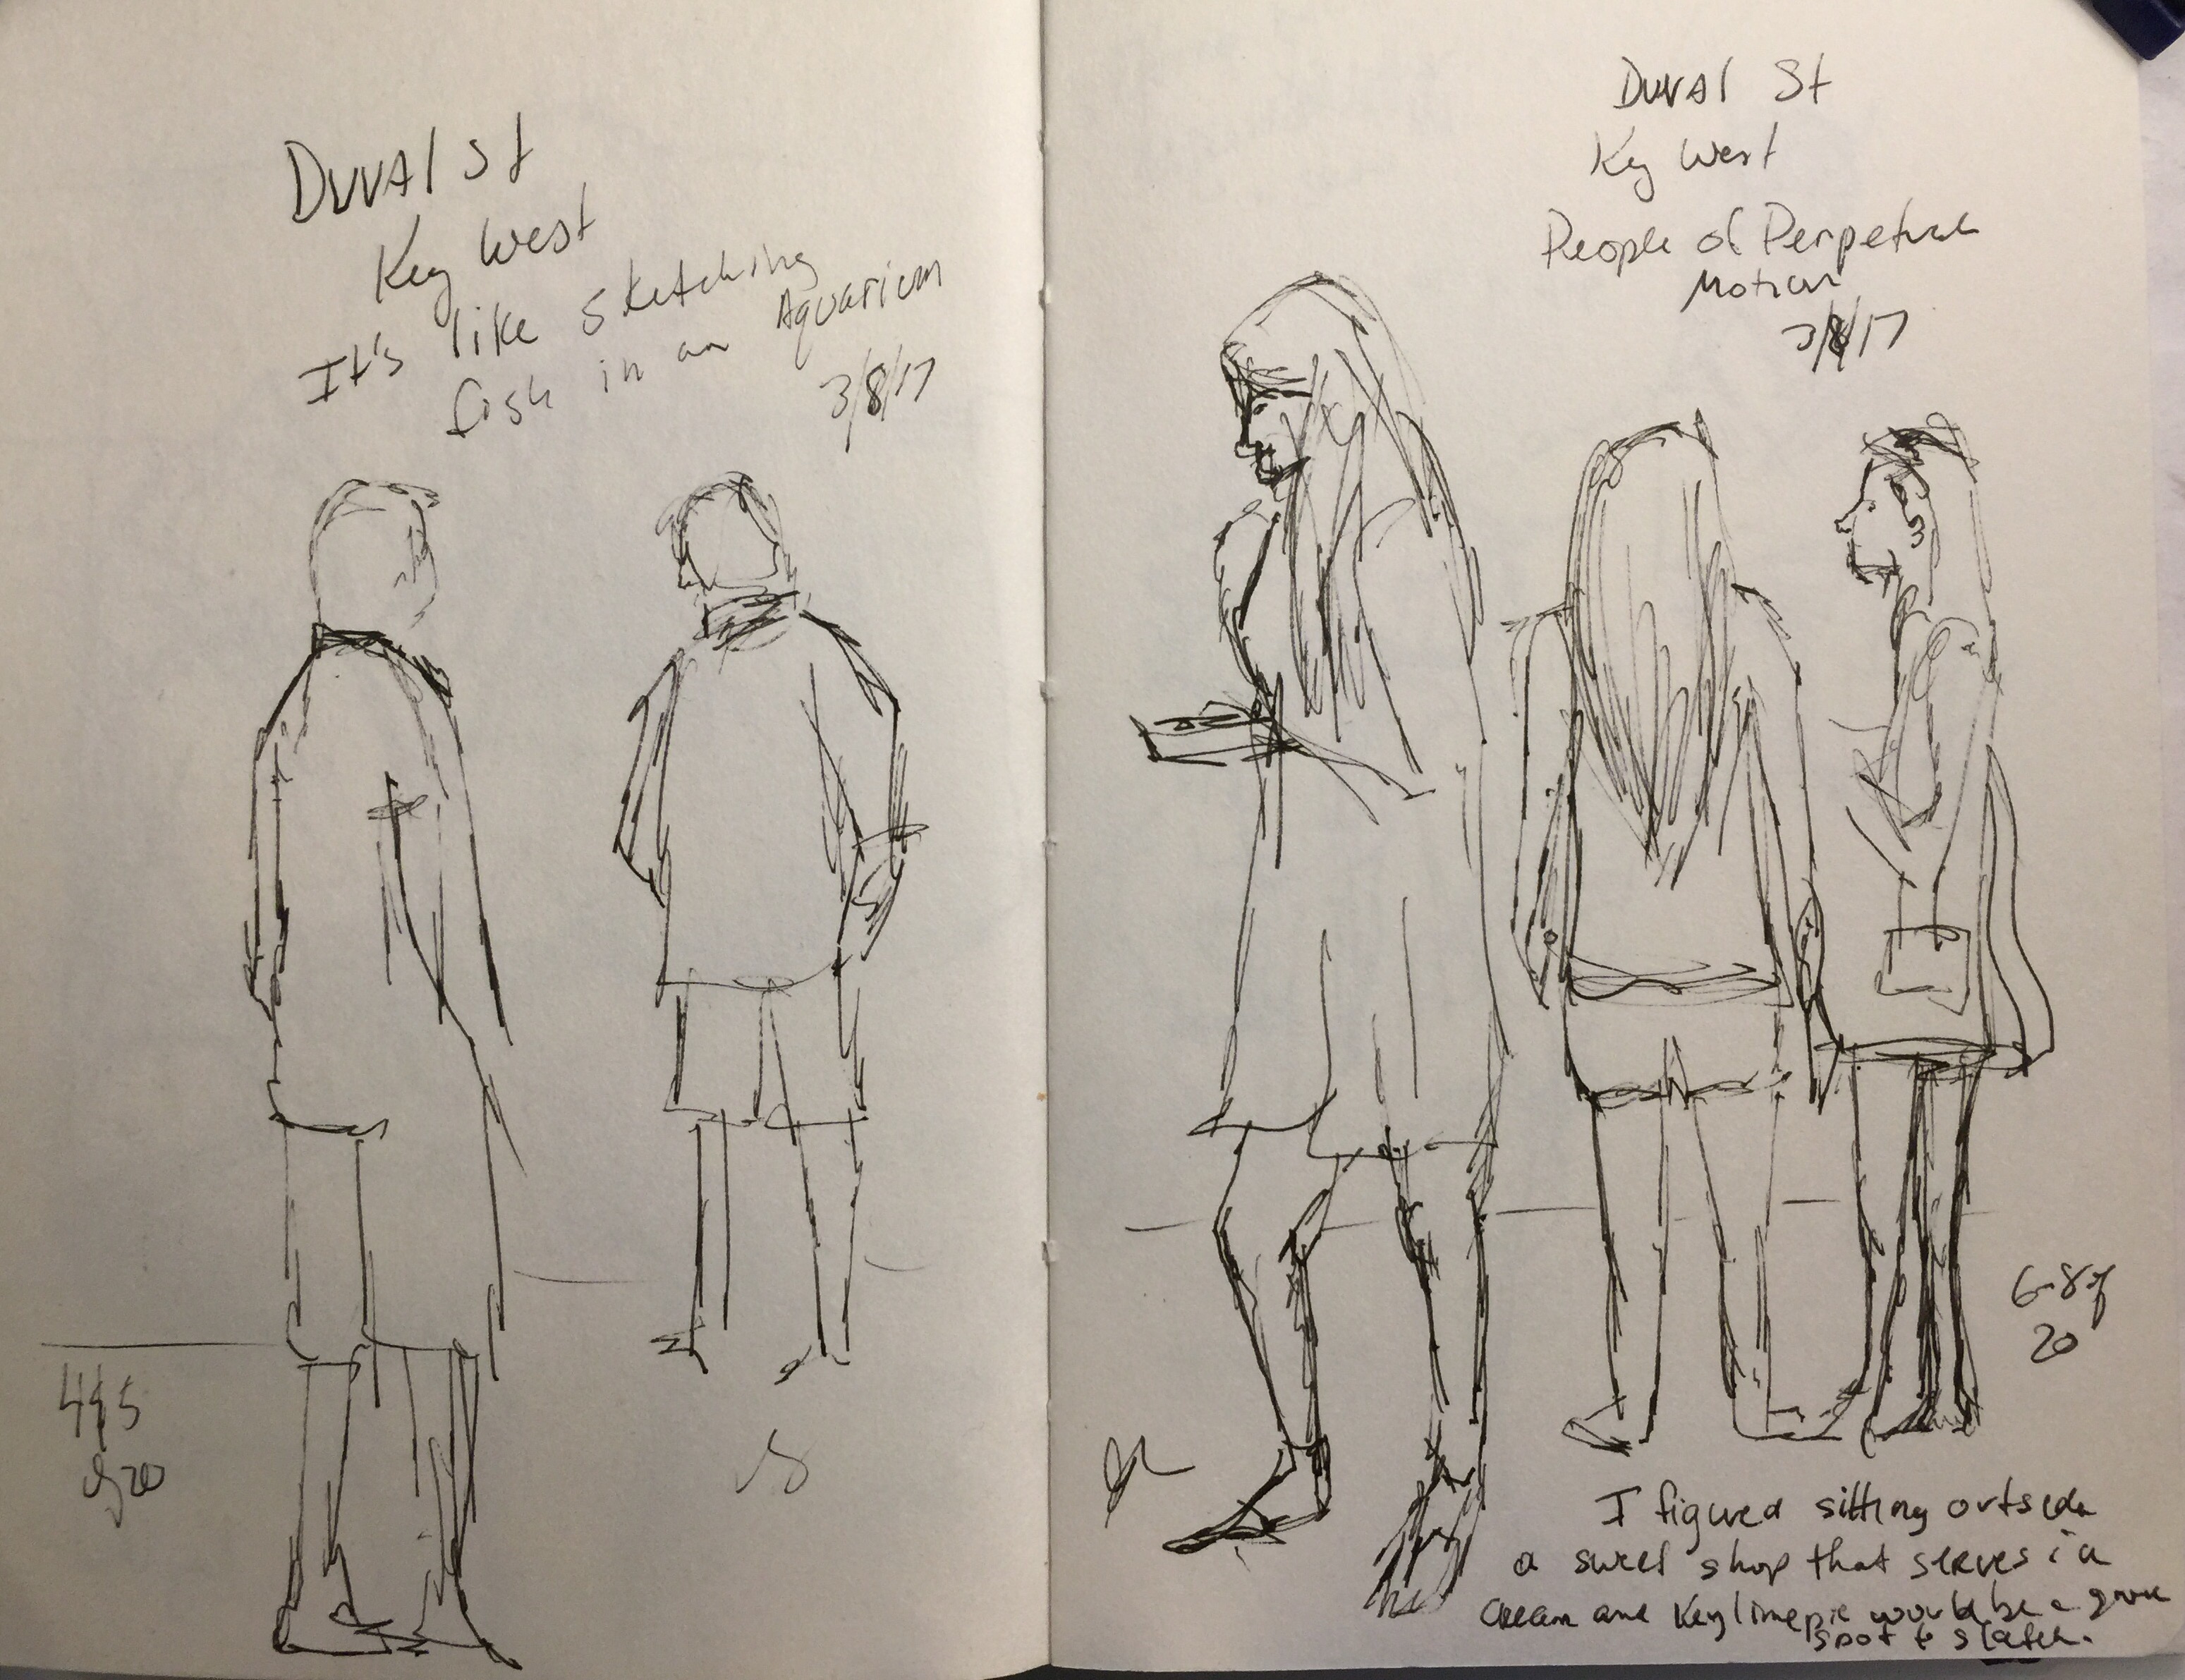 Duval St
Key West
It's like sketching
fish in an Aquarium
3/8/17
4 & 5
of 20
Duval St
Key West
People of Perpetual
Motion
3/8/17
6-8 of
20
I figured sitting outside
a sweet shop that serves ice
cream and Key lime pie would be a good
spot to sketch.